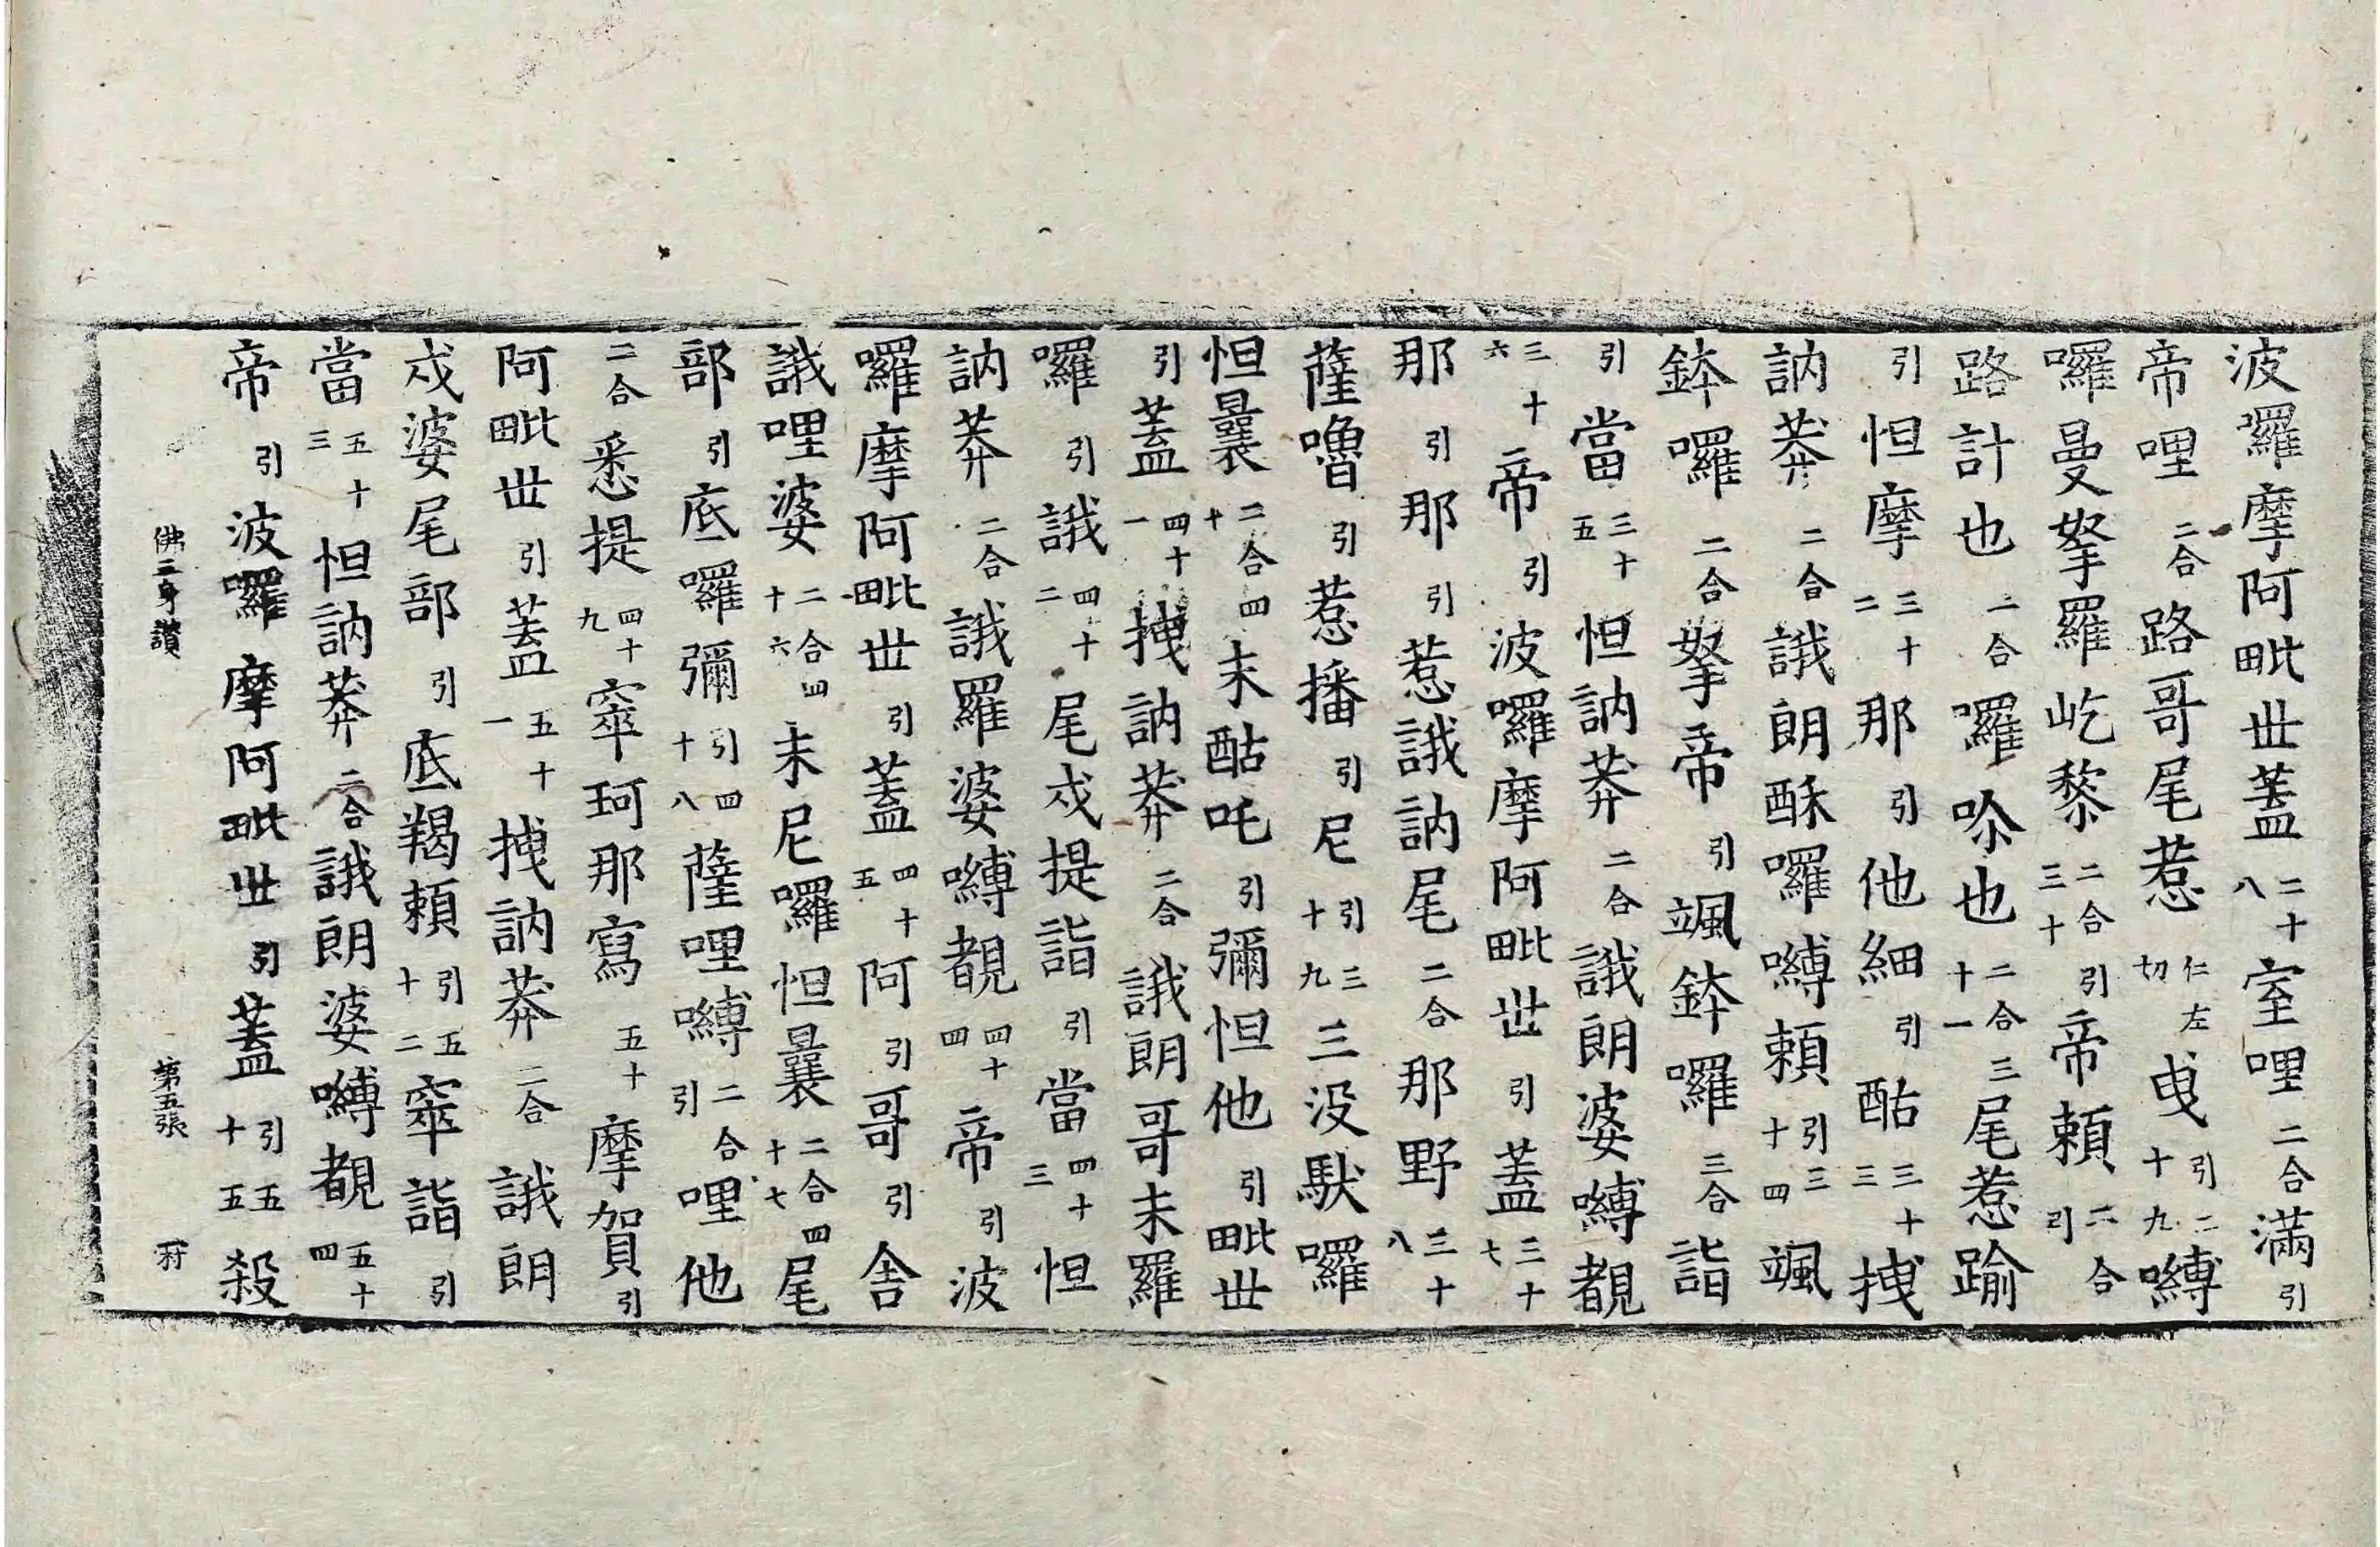 波囉摩阿毗丗蓋二十八室哩二合滿引
帝哩二合路哥尾惹仁左切曳引二十九嚩
囉曼拏羅屹黎二合三十引帝頼二合引
路計也二合囉吩也二合十一三尾惹踰
引怛摩三十二那引他細引酤三十三拽
訥莽二合誐朗酥囉嚩頼引三十四颯
鉢囉二合拏帝引颯鉢囉三合詣
引當三十五怛訥莽二合誐朗婆嚩覩
三十六帝引波囉摩阿毗丗引蓋三十七
那引那引惹誐訥尾二合那野三十八
薩嚕引惹播引尼引三十九三没馱囉
怛曩二合四十末酤吒引彌怛他引毗丗
引蓋四十一拽訥莽二合誐朗哥末羅
囉引誐四十二尾戍提詣引當四十三怛
訥莽二合誐羅婆嚩覩四十四帝引波
囉摩阿毗丗引蓋四十五阿引哥引舍
誐哩婆二合四十六末尼囉怛曩二合四十七尾
部引底囉彌引四十八薩哩嚩二合引哩他
二合悉提四十九窣珂那寫五十摩賀引
阿毗丗引蓋五十一拽訥莽二合誐朗
戍婆尾部引底羯頼引五十二窣詣引
當五十三怛訥莽二合誐朗婆嚩覩五十四
帝引波囉摩阿毗丗引蓋引五十五殺
佛三身讚 第五張